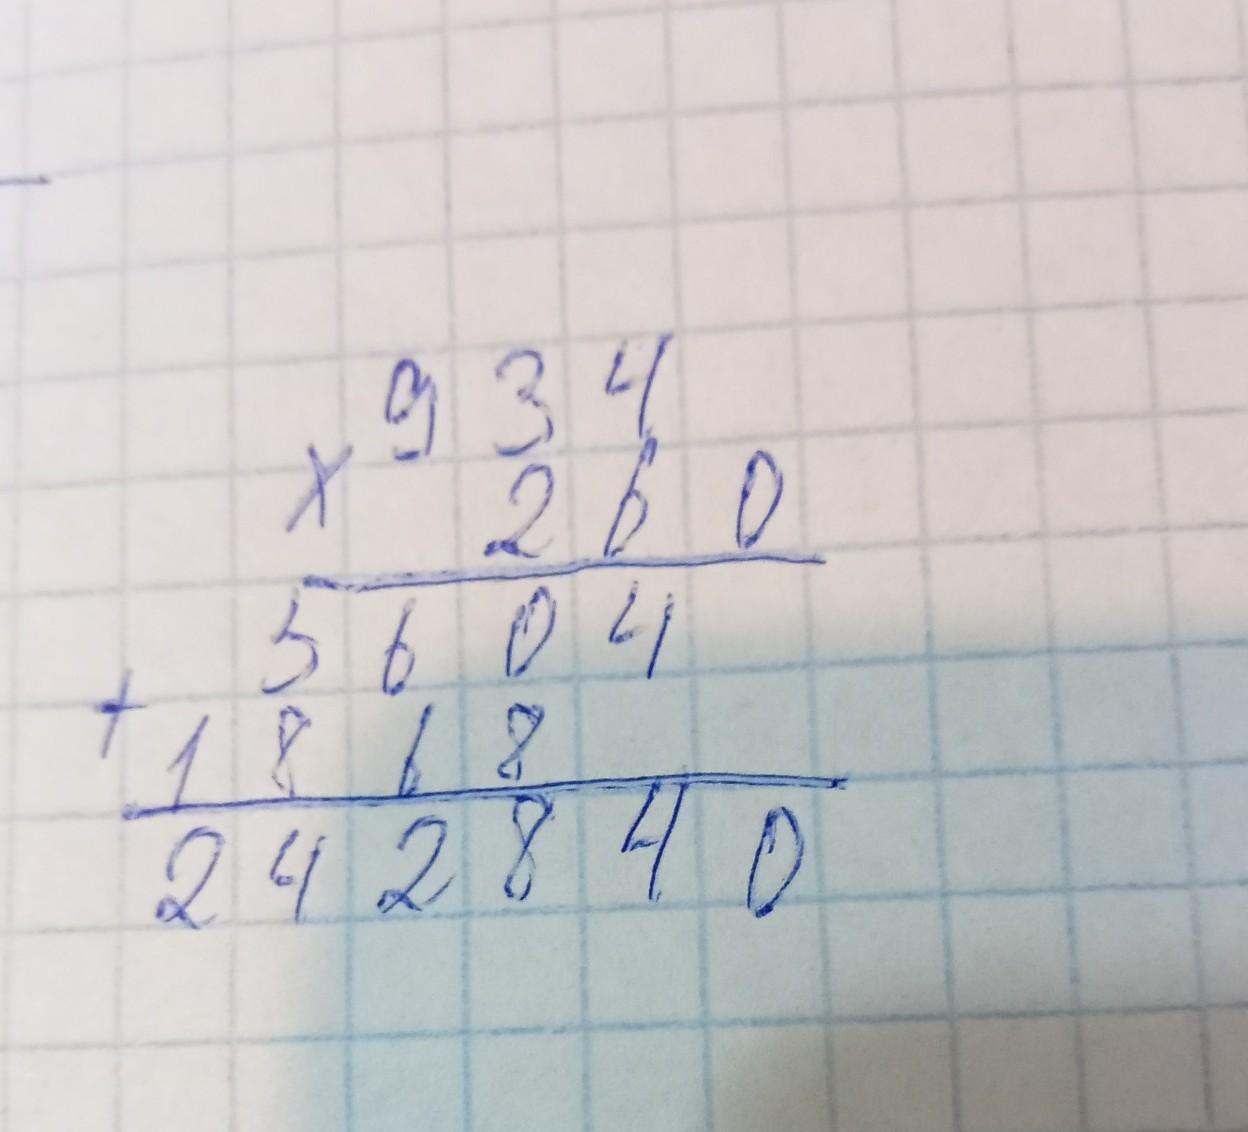 934
× 260
5604
+ 1868
242840